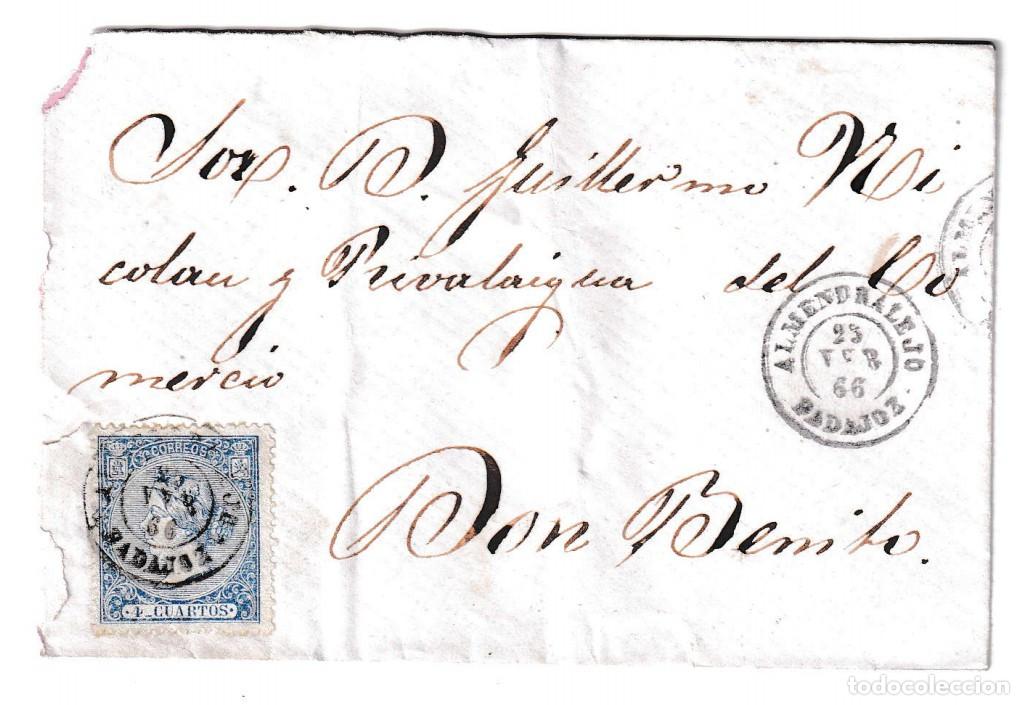 Sor. D. Guillermo Ni
colau y Privalaigua del Co
mercio
Don Benito.
ALMENDRALEJO
25
66
BADAJOZ
CORREOS
66
BADAJOZ
4 CUARTOS
todocoleccion